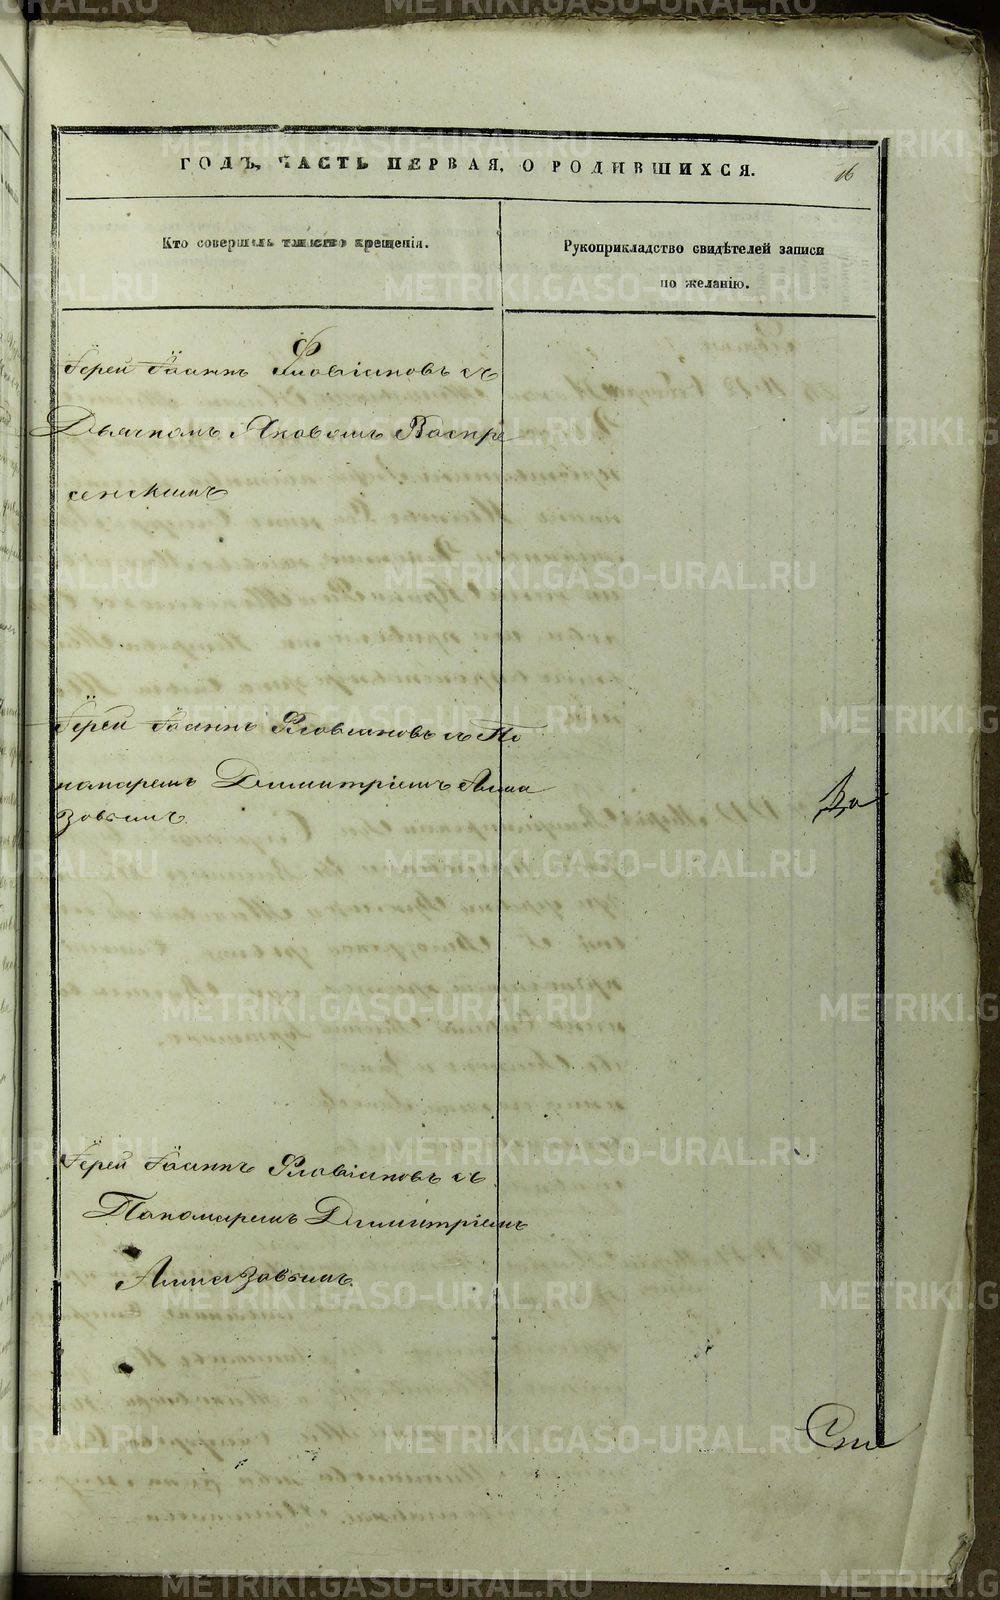 ГОДЪ, ЧАСТЬ ПЕРВАЯ, О РОДИВШИХСЯ.
16
Кто совершалъ таинство крещенія.
Рукоприкладство свидѣтелей записи
по желанію.
Іерей Іоаннъ Флавіановъ съ
Дьячкомъ Яковомъ Воскре
сенскимъ
Іерей Іоаннъ Флавіановъ съ По
номаремъ Димитріемъ Алма
зовымъ
Іерей Іоаннъ Флавіановъ съ
Пономаремъ Димитріемъ
Алмазовымъ.
METRIKI.GASO-URAL.RU